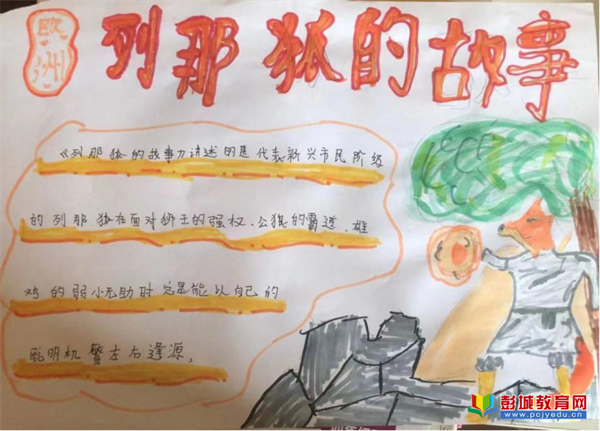 欧洲
列那狐的故事
《列那狐的故事》讲述的是代表新兴市民阶级
的列那狐在面对狮王的强权、公狼的霸道、雄
鸡的弱小无助时总是能以自己的
聪明机警左右逢源。
彭城教育网
www.pcjyedu.cn